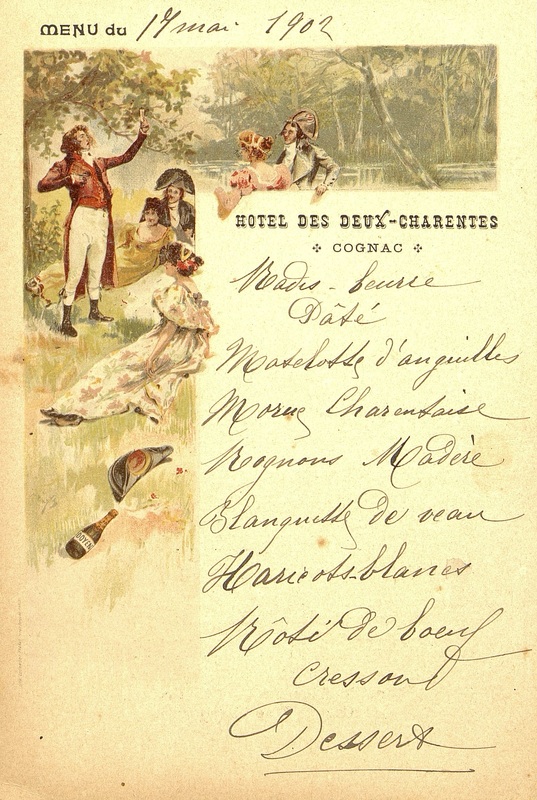 MENU du 17 mai 1902
HOTEL DES DEUX-CHARENTES
COGNAC
Radis - beurre
Pâté
Matelotte d'anguilles
Morue Charentaise
Rognons Madère
Blanquette de veau
Haricots-blancs
Rôti de boeuf
Cresson
Dessert